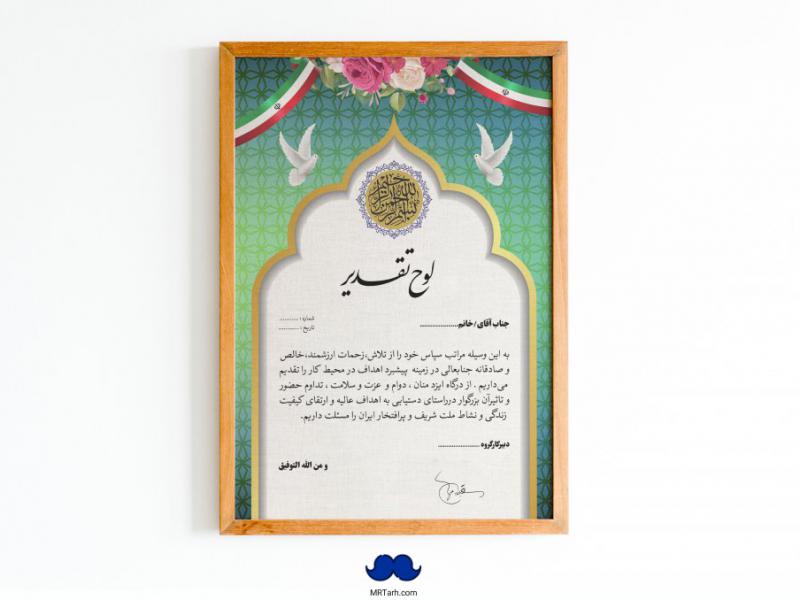 بسم الله الرحمن الرحیم
لوح تقدیر
شماره : ............
تاریخ : ............
جناب آقای/ خانم......................
به این وسیله مراتب سپاس خود را از تلاش،زحمات ارزشمند،خالص
و صادقانه جنابعالی در زمینه پیشبرد اهداف در محیط کار را تقدیم
می‌داریم . از درگاه ایزد منان ، دوام و عزت و سلامت ، تداوم حضور
و تاثیرآن بزرگوار درراستای دستیابی به اهداف عالیه و ارتقای کیفیت
زندگی و نشاط ملت شریف و پرافتخار ایران را مسئلت داریم.
دبیرکارگروه ......................
و من الله التوفیق
MRTarh.com